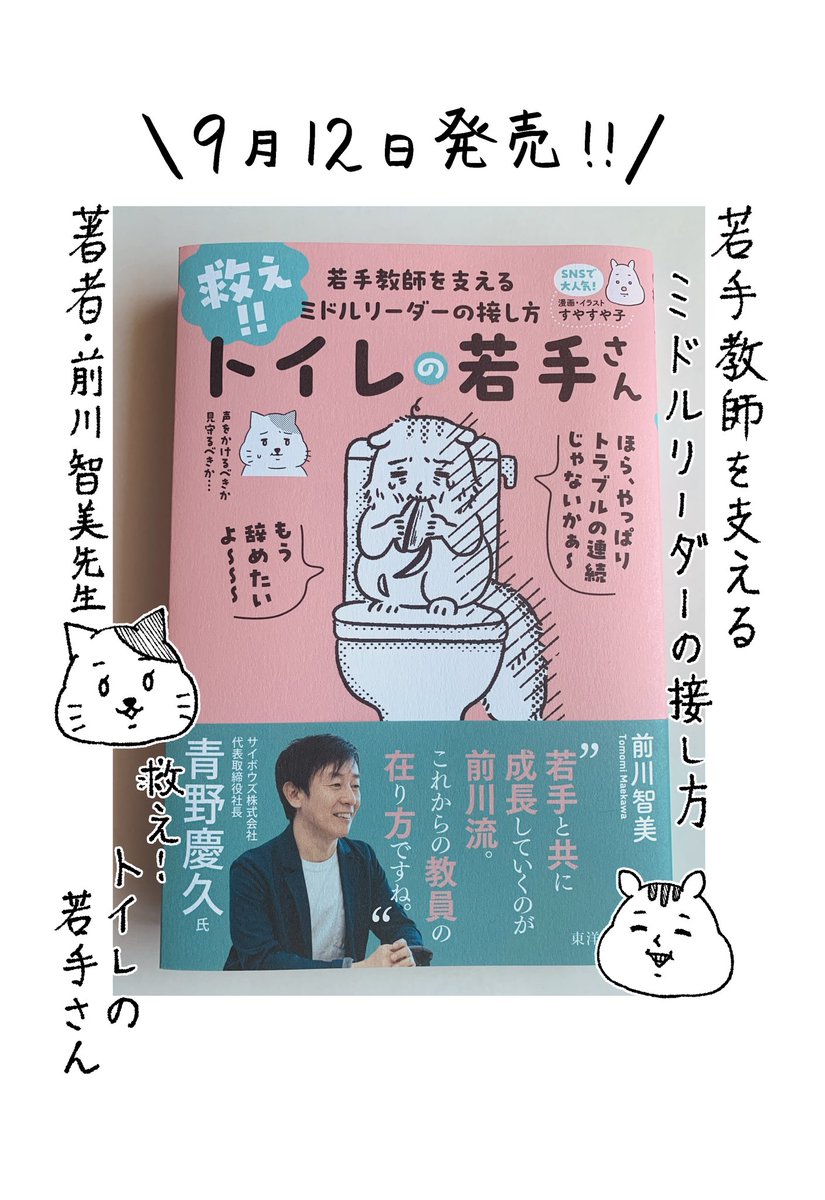 9月12日発売!!
若手教師を支える
ミドルリーダーの接し方
著者・前川智美先生
救え!!
若手教師を支える
ミドルリーダーの接し方
SNSで
大人気!
漫画・イラスト
すやすや子
トイレの若手さん
声をかけるべきか
見守るべきか…
ほら、やっぱり
トラブルの連続
じゃないかぁ~
もう
辞めたい
よ~~~
前川智美
Tomomi Maekawa
"若手と共に
成長していくのが
前川流。
これからの教員の
在り方ですね。"
サイボウズ株式会社
代表取締役社長
青野慶久氏
東洋
救え!
トイレの
若手さん